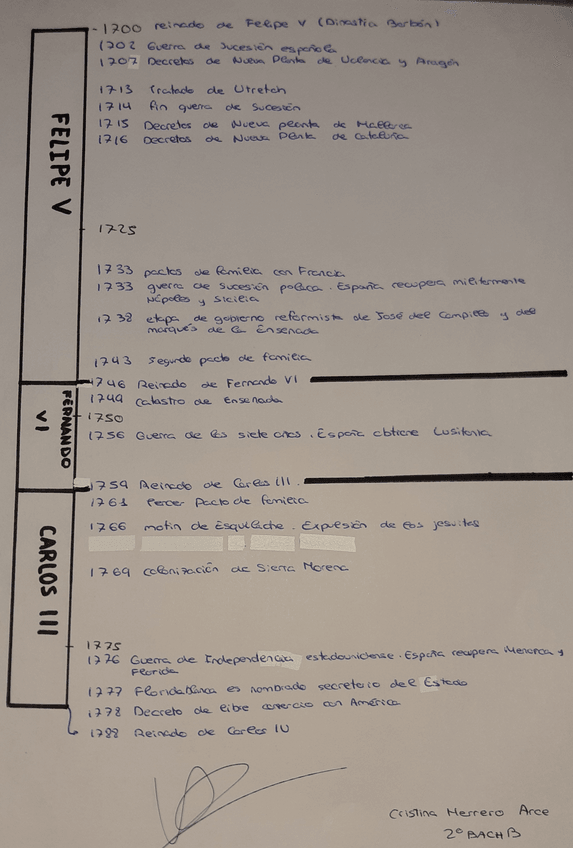 - 1700 reinado de Felipe V (Dinastía Borbón)
1702 Guerra de Sucesión española
1707 Decretos de Nueva Planta de Valencia y Aragón
1713 Tratado de Utretch
1714 Fin guerra de sucesión
1715 Decretos de Nueva planta de Mallorca
1716 Decretos de Nueva Planta de Cataluña
FELIPE V
1725
1733 pactos de familia con Francia
1733 guerra de sucesión polaca. España recupera militarmente
Nápoles y Sicilia
1738 etapa de gobierno reformista de José del Campillo y del
marqués de la Ensenada
1743 Segundo pacto de familia
1746 Reinado de Fernando VI
1749 catastro de Ensenada
FERNANDO VI
1750
1756 Guerra de los siete años. España obtiene Lusitania
1759 Reinado de Carlos III.
1761 Tercer Pacto de familia
1766 motín de Esquilache. Expulsión de los jesuitas
CARLOS III
1769 colonización de Sierra Morena
1775
1776 Guerra de Independencia estadounidense. España recupera Menorca y
Florida
1777 Floridablanca es nombrado secretario del Estado
1778 Decreto de libre comercio con América
1788 Reinado de Carlos IV
Cristina Herrero Arce
2º BACH B